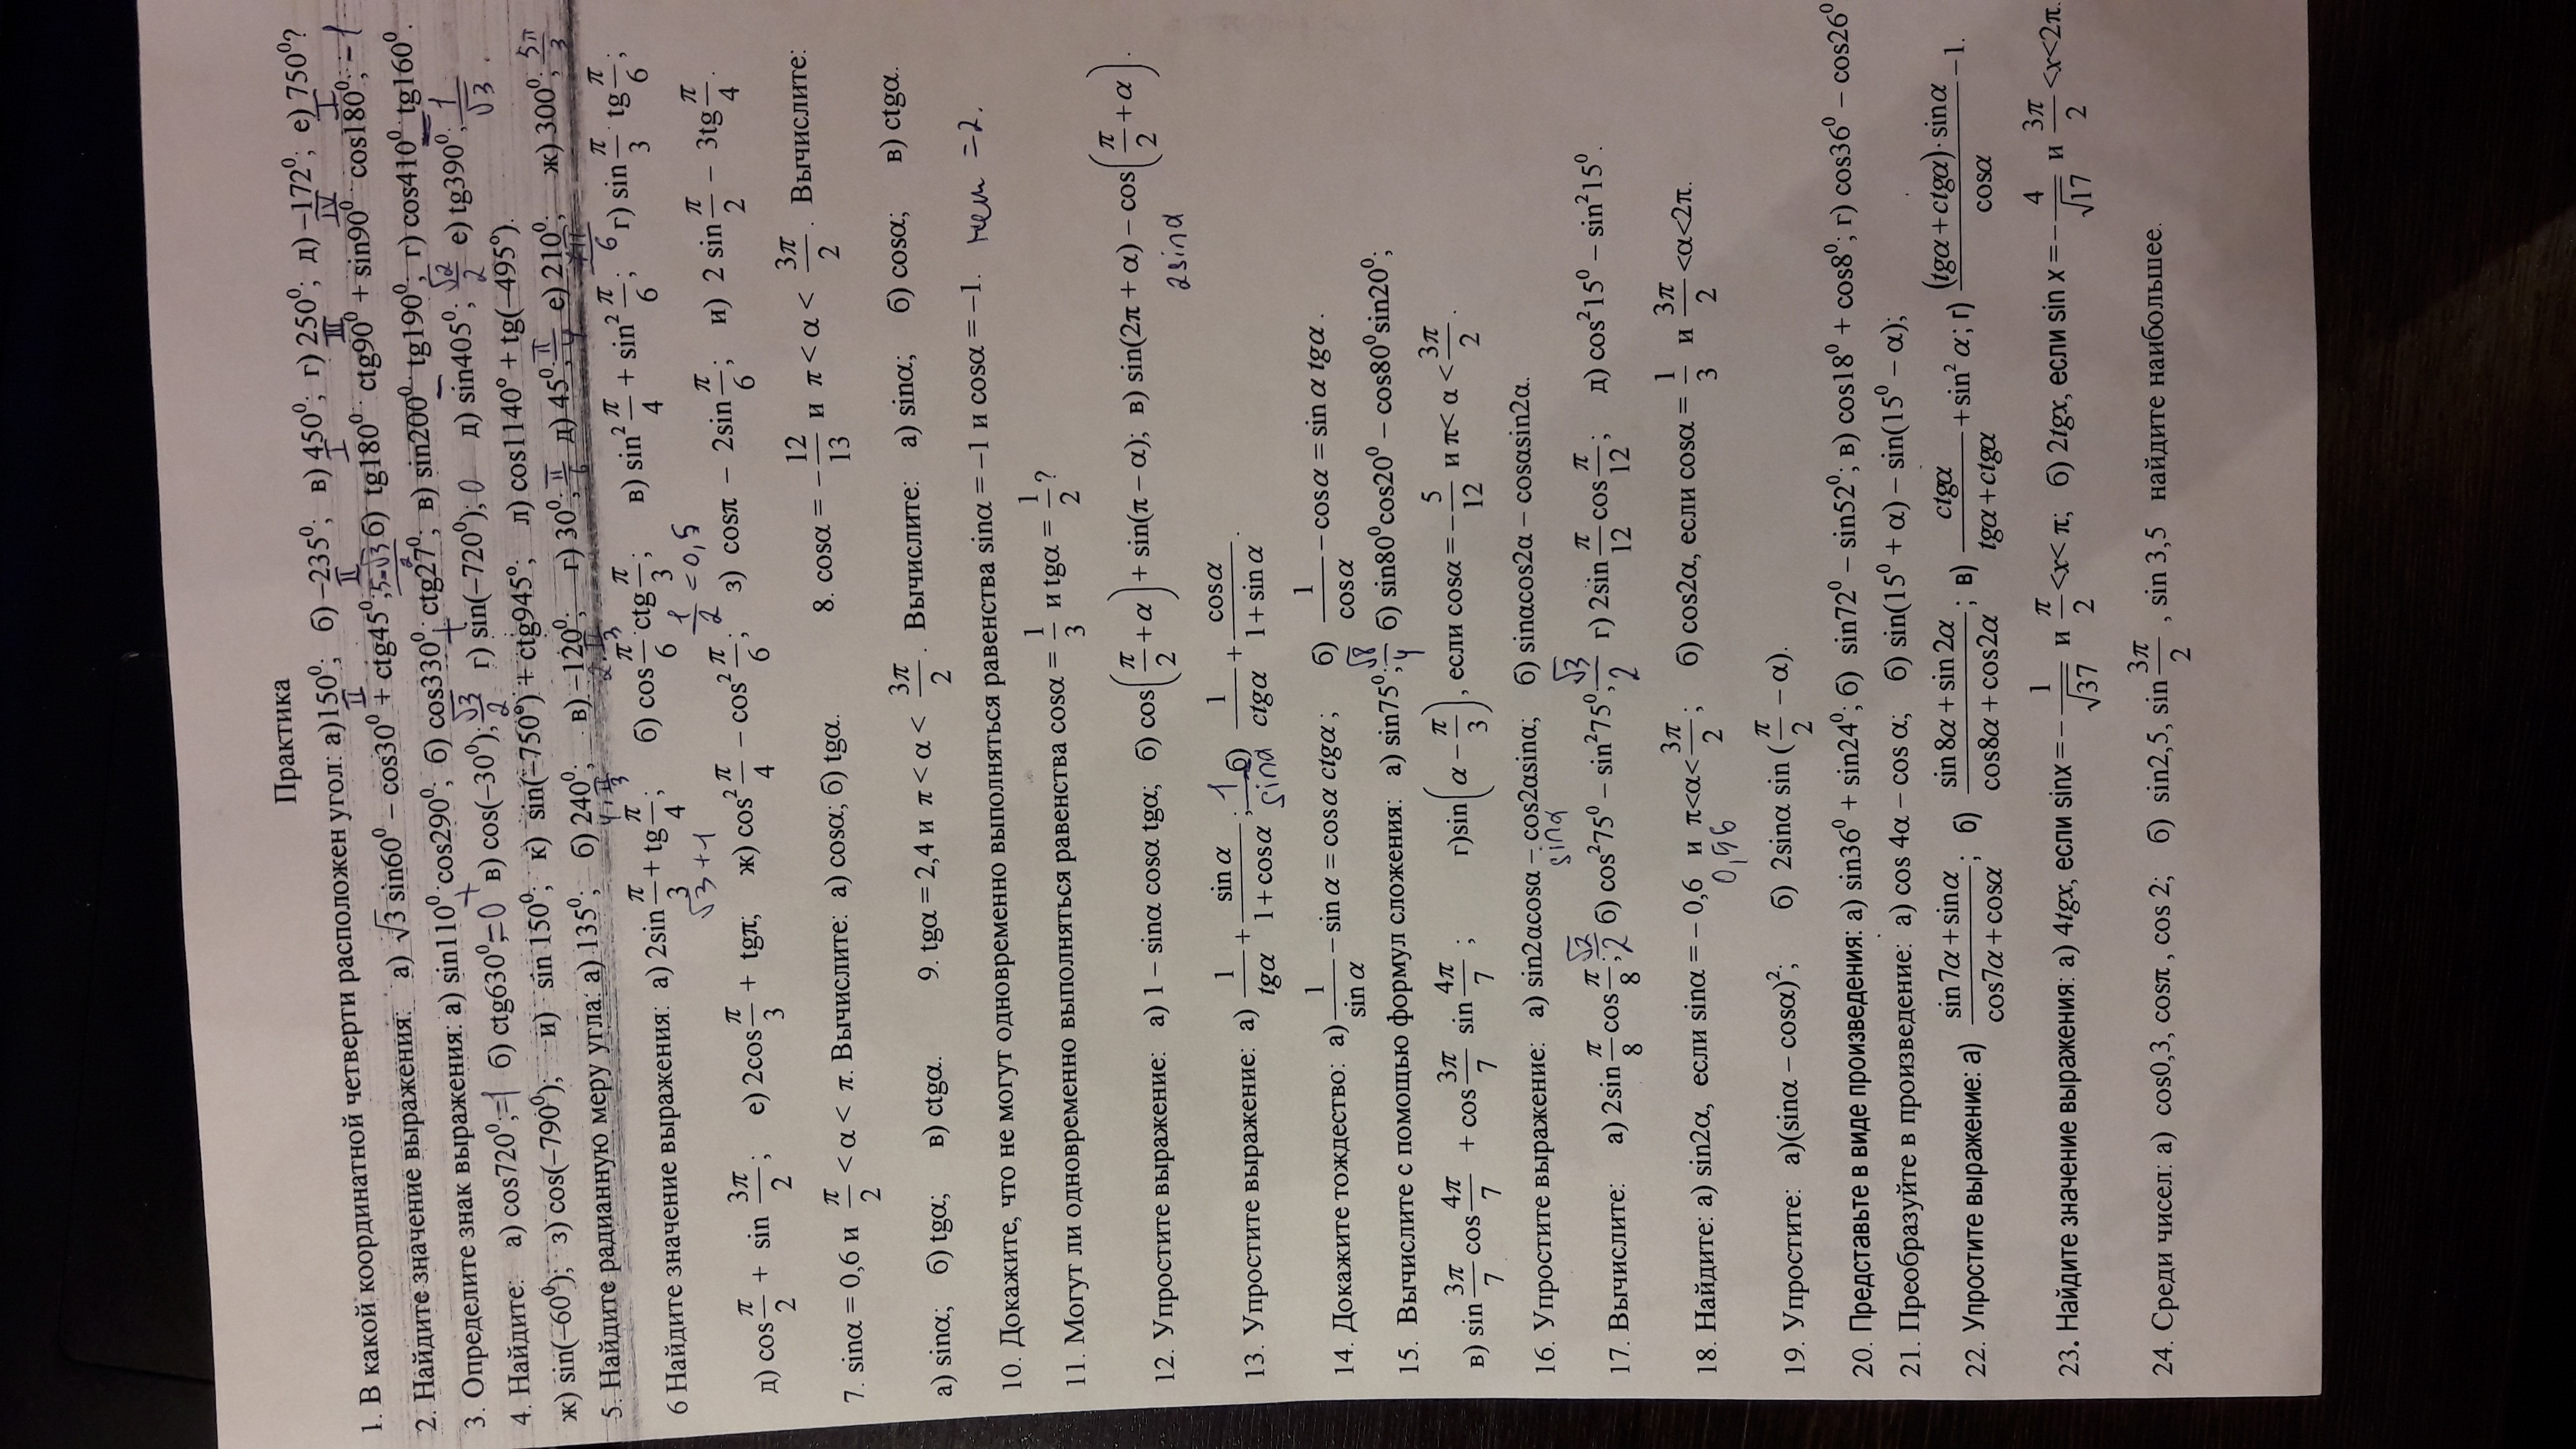 Практика
1. В какой координатной четверти расположен угол: а)150⁰; б) −235⁰; в) 450⁰; г) 250⁰; д) −172⁰; е) 750⁰?
II II I III IV I
2. Найдите значение выражения: а) √3 sin60⁰ − cos30⁰ + ctg45⁰; б) tg180⁰ · ctg90⁰ + sin90⁰ · cos180⁰. −1
3. Определите знак выражения: а) sin110⁰·cos290⁰; б) cos330⁰·ctg27⁰; в) sin200⁰·tg190⁰; г) cos410⁰·tg160⁰.
+ + − −
4. Найдите: а) cos720⁰; =1 б) ctg630⁰; =0 в) cos(−30⁰); √3/2 г) sin(−720⁰); 0 д) sin405⁰; √2/2 е) tg390⁰; 1/√3.
ж) sin(−60⁰); з) cos(−790⁰); и) sin 150⁰; к) sin(−750⁰) + ctg945⁰; л) cos1140⁰ + tg(−495⁰).
5. Найдите радианную меру угла: а) 135⁰; б) 240⁰; в) −120⁰; г) 30⁰; π/6 д) 45⁰; π/4 е) 210⁰; ж) 300⁰; 5π/3
6 Найдите значение выражения: а) 2sin π/3 + tg π/4; б) cos π/6 · ctg π/3; в) sin² π/4 + sin² π/6; г) sin π/3 · tg π/6;
√3 + 1 1/2 = 0,5
д) cos π/2 + sin 3π/2; е) 2cos π/3 + tgπ; ж) cos² π/4 − cos² π/6; з) cosπ − 2sin π/6; и) 2 sin π/2 − 3tg π/4.
7. sinα = 0,6 и π/2 < α < π. Вычислите: а) cosα; б) tgα. 8. cosα = −12/13 и π < α < 3π/2. Вычислите:
а) sinα; б) tgα; в) ctgα. 9. tgα = 2,4 и π < α < 3π/2. Вычислите: а) sinα; б) cosα; в) ctgα.
10. Докажите, что не могут одновременно выполняться равенства sinα = −1 и cosα = −1. нет =2.
11. Могут ли одновременно выполняться равенства cosα = 1/3 и tgα = 1/2?
12. Упростите выражение: а) 1 − sinα cosα tgα; б) cos(π/2 + α) + sin(π − α); в) sin(2π + α) − cos(π/2 + α).
2sinα
13. Упростите выражение: а) 1/tgα + sin α/(1 + cosα); 1/sinα б) 1/ctgα + cosα/(1 + sin α).
14. Докажите тождество: а) 1/sin α − sin α = cosα ctgα; б) 1/cosα − cosα = sin α tgα.
15. Вычислите с помощью формул сложения: а) sin75⁰; √8/4 б) sin80⁰cos20⁰ − cos80⁰sin20⁰;
в) sin 3π/7 cos 4π/7 + cos 3π/7 sin 4π/7; г)sin(α − π/3), если cosα = −5/12 и π< α < 3π/2.
16. Упростите выражение: а) sin2αcosα − cos2αsinα; б) sinαcos2α − cosαsin2α.
sinα
17. Вычислите: а) 2sin π/8 cos π/8; √2/2 б) cos²75⁰ − sin²75⁰; √3/2 г) 2sin π/12 cos π/12; д) cos²15⁰ − sin²15⁰.
18. Найдите: а) sin2α, если sinα = − 0,6 и π<α< 3π/2; б) cos2α, если cosα = 1/3 и 3π/2 <α<2π.
0,96
19. Упростите: а)(sinα − cosα)²; б) 2sinα sin (π/2 − α).
20. Представьте в виде произведения: а) sin36⁰ + sin24⁰; б) sin72⁰ − sin52⁰; в) cos18⁰ + cos8⁰; г) cos36⁰ − cos26⁰
21. Преобразуйте в произведение: а) cos 4α − cos α; б) sin(15⁰ + α) − sin(15⁰ − α);
22. Упростите выражение: а) (sin 7α + sinα)/(cos7α + cosα); б) (sin 8α + sin 2α)/(cos8α + cos2α); в) ctgα/(tgα + ctgα) + sin² α; г) ((tgα + ctgα)·sinα)/cosα − 1.
23. Найдите значение выражения: а) 4tgx, если sinx = −1/√37 и π/2 <x< π; б) 2tgx, если sin x = −4/√17 и 3π/2 <x<2π.
24. Среди чисел: а) cos0,3, cosπ, cos 2; б) sin2,5, sin 3π/2, sin 3,5 найдите наибольшее.